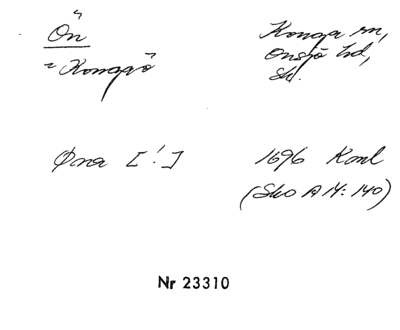 Ön
= Kongaö
Konga sn,
Onsjö hd,
Sk.
Øna [!]
1696 Konl
(Sko A IV: 140)
Nr 23310